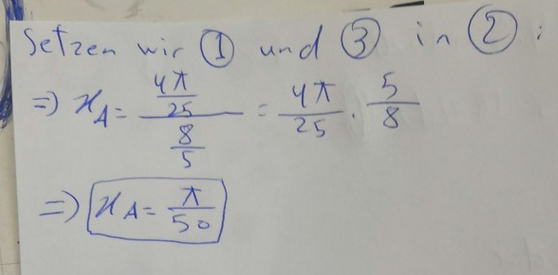 Setzen wir ① und ③ in ② :
=> x_A = (4π/25)/(8/5) = 4π/25 · 5/8
=> x_A = π/50